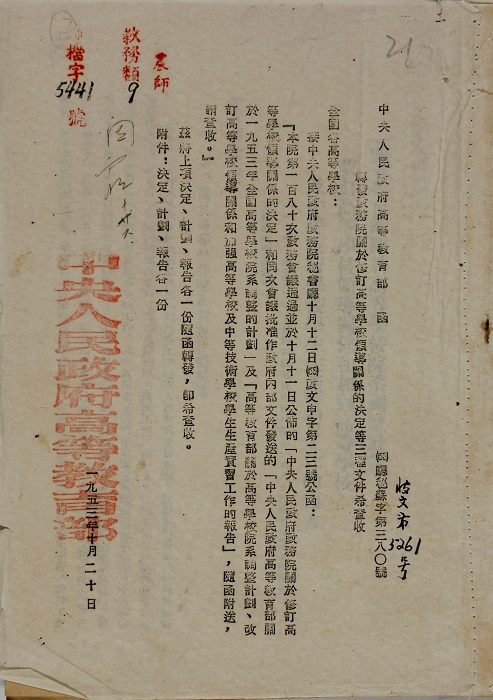 中央人民政府高等教育部 函
廳秘蘇字第三八〇號
政文市5261号
轉發政務院關於修訂高等學校領導關係的決定等三種文件希查收
全國各高等學校：
接中央人民政府政務院秘書廳十月十二日政文申字第二三號公函：
「本院第一百八十次政務會議通過並於十月十一日公佈的「中央人民政府政務院關於修訂高
等學校領導關係的決定」和同次會議批准作政府內部文件發送的「中央人民政府高等教育部關
於一九五三年全國高等學校院系調整的計劃」及「高等教育部關於高等學校院系調整計劃、改
訂高等學校領導關係和加强高等學校及中等技術學校學生生產實習工作的報告」，隨函附送，
請查收。」
茲將上項決定、計劃、報告各一份隨函轉發，即希查收。
附件：決定、計劃、報告各一份
中央人民政府高等教育部
一九五三年十月二十日
農師
教務類9
檔字5441號